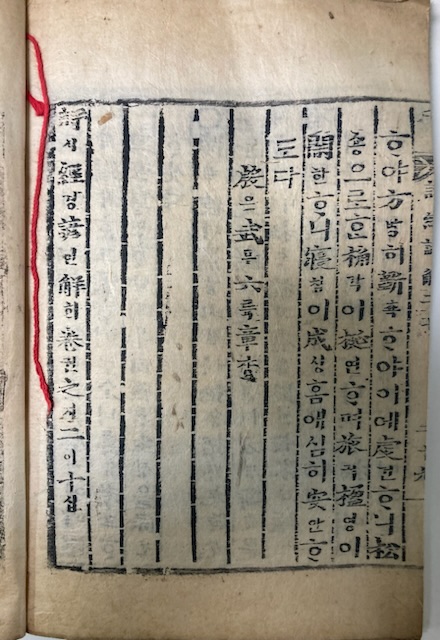 ᄒᆞ야方방히斲착ᄒᆞ야이에虔건ᄒᆞ니松
숑으로ᄒᆞᆫ桷각이梴연ᄒᆞ며旅려楹영이
閑한ᄒᆞ니寢침이成셩ᄒᆞᆷ애심히安안ᄒᆞ
도다
殷은武무六륙章쟝
詩시經경諺언解ᄒᆡ卷권之지二이十십